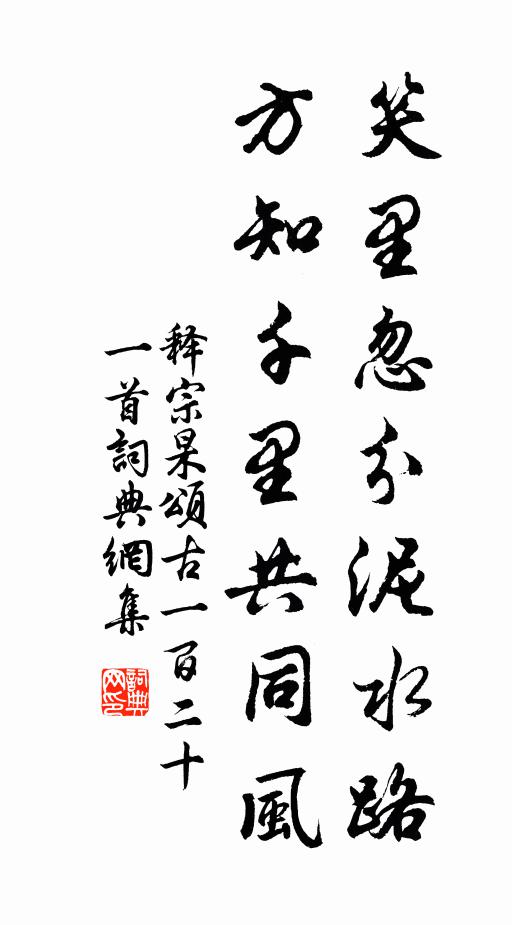 笑里忽分泥水路
方知千里共同風
释宗杲頌古一百二十
一首詞典網集
詞典
网印